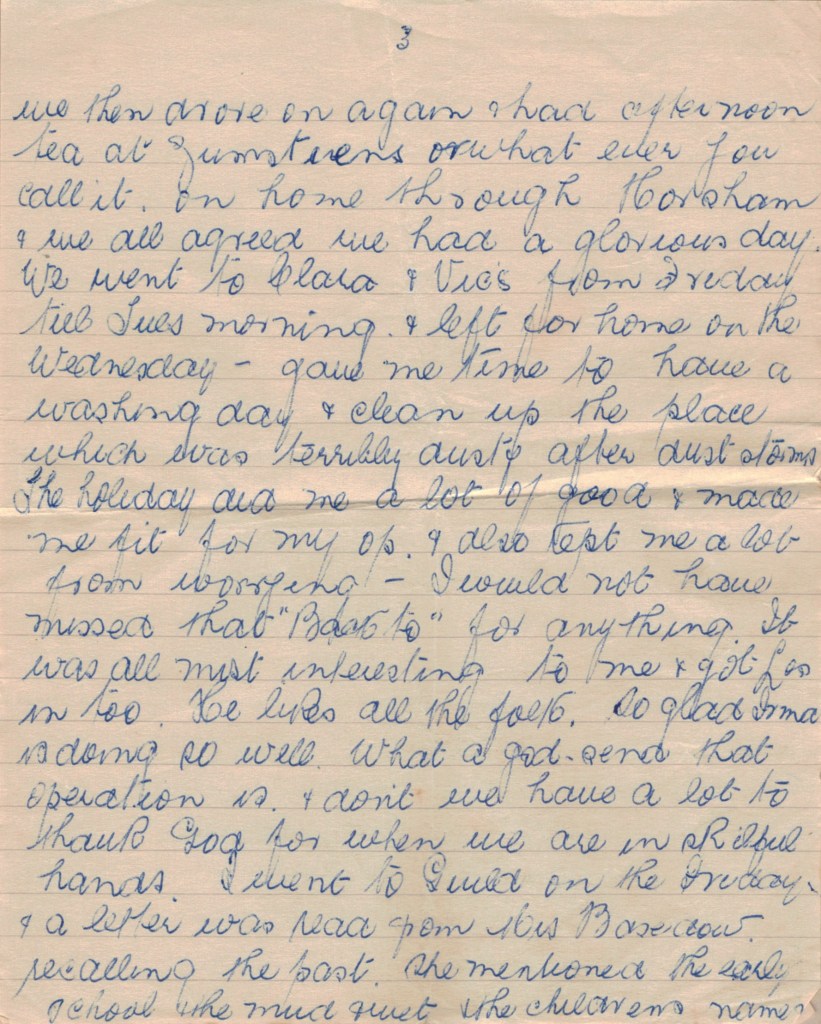 3
we then drove on again & had afternoon
tea at Zumsteins or what ever you
call it. on home through Horsham
& we all agreed we had a glorious day.
We went to Clara & Vic's from Friday
till Tues morning. & left for home on the
Wednesday – gave me time to have a
washing day & clean up the place
which was terribly dusty after dust storms
The holiday did me a lot of good & made
me fit for my op. & also kept me a lot
from worrying – I would not have
missed that "Back to" for anything. It
was all most interesting to me & got Les
in too. He likes all the folk. So glad Irma
is doing so well. What a god-send that
operation is. & don't we have a lot to
thank God for when we are in skilful
hands. I went to Guild on the Friday.
& a letter was read from Mrs Basedow.
recalling the past. she mentioned the early
school & the mud & wet & the childrens names